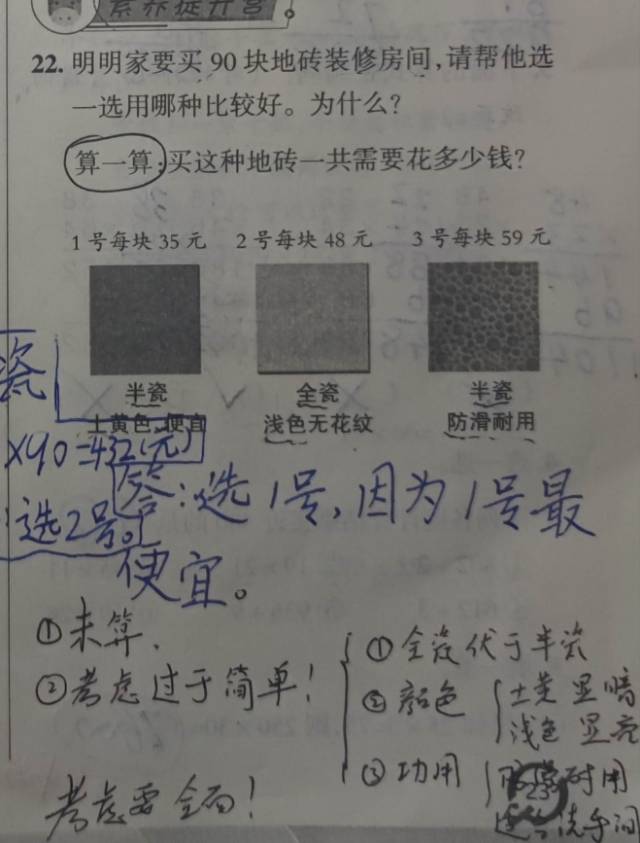 素养提升营
22. 明明家要买 90 块地砖装修房间,请帮他选
一选用哪种比较好。为什么?
算一算:买这种地砖一共需要花多少钱?
1 号每块 35 元 2 号每块 48 元 3 号每块 59 元
瓷
半瓷 全瓷 半瓷
土黄色、便宜 浅色无花纹 防滑耐用
×90=432(元)
答:选1号,因为1号最
选2号。
便宜。
①未算、
②考虑过于简单!
考虑要全面!
①全瓷优于半瓷
②颜色 土黄显暗
浅色显亮
③功用 防滑耐用
洗手间